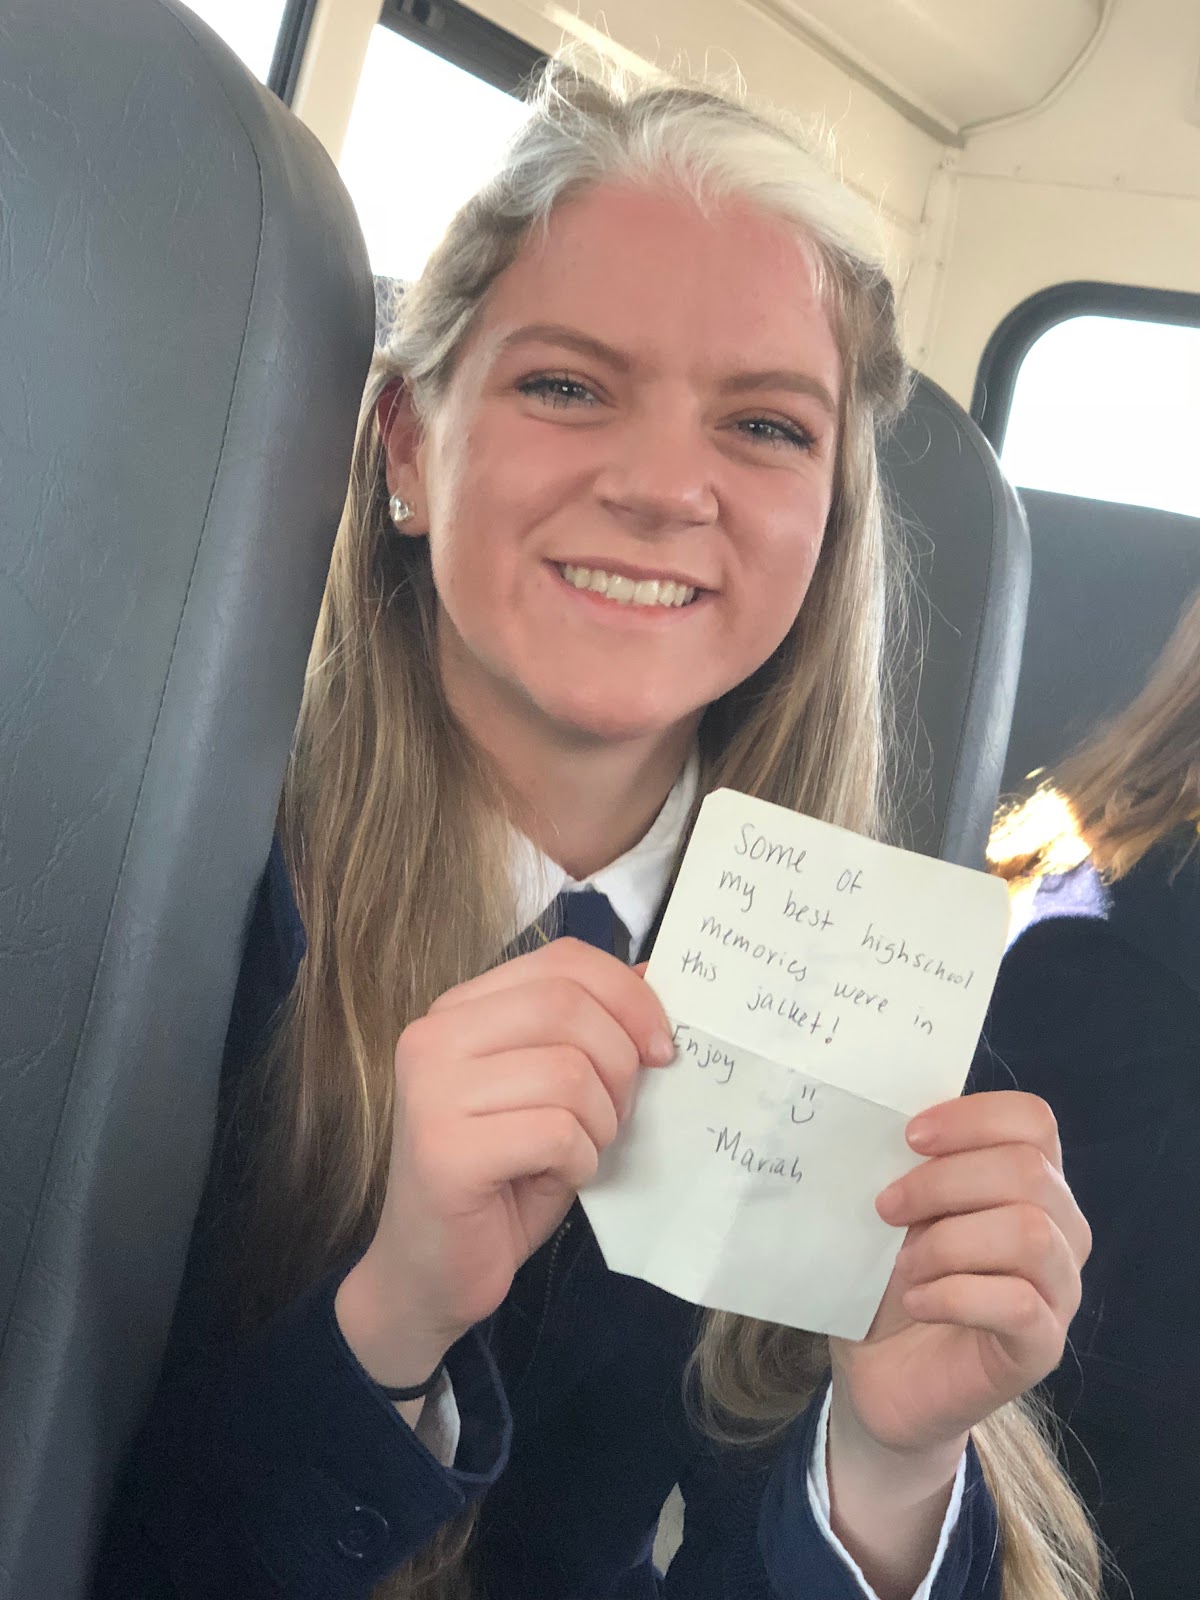 Some of
my best highschool
memories were in
this jacket!
Enjoy :)
-Mariah